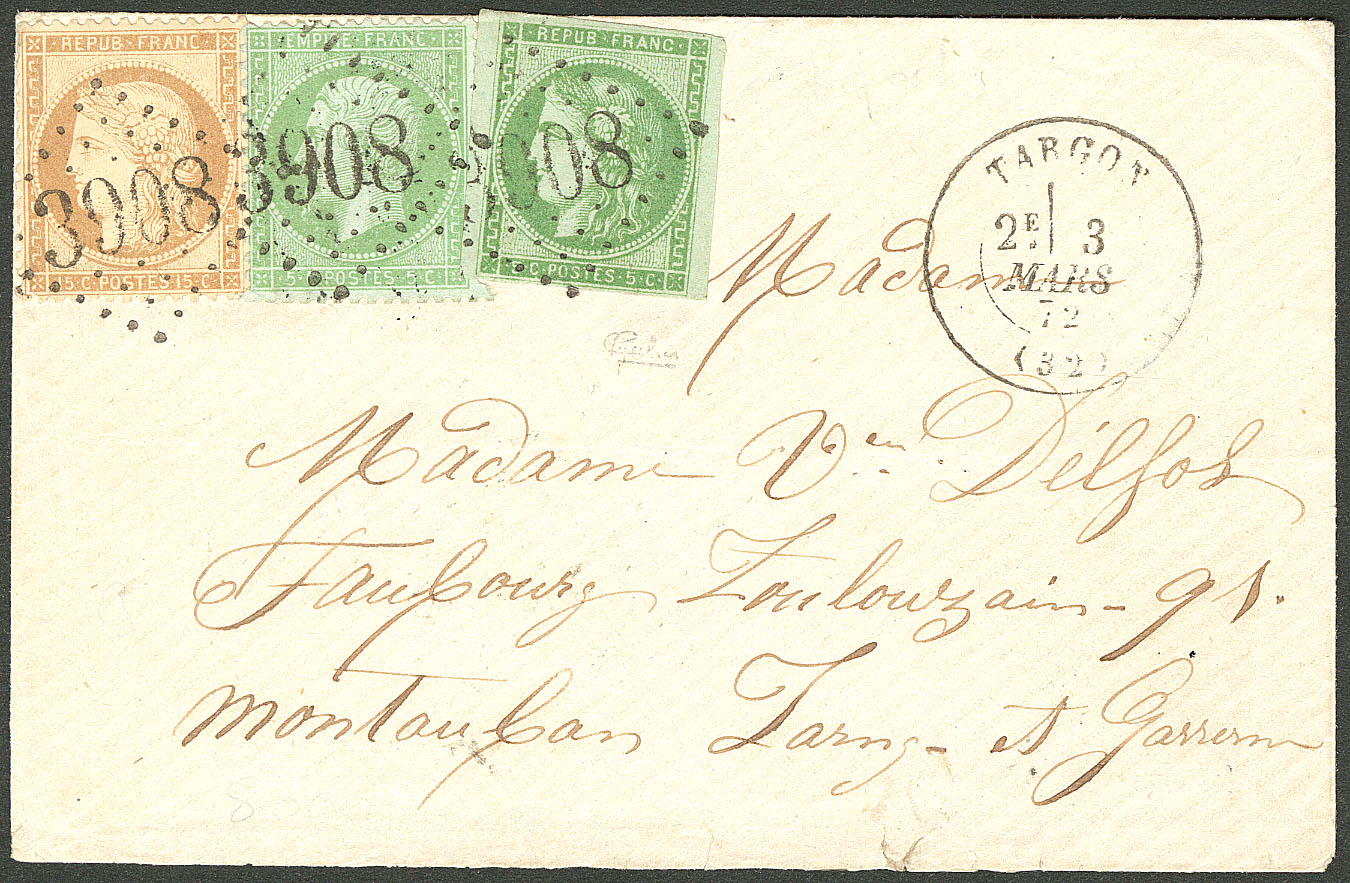 REPUB FRANC
15 C POSTES 15 C
3908
EMPIRE FRANC
5 C POSTES 5 C
3908
REPUB FRANC
5 C POSTES 5 C
908
TARGON
2E 3
MARS
72
(32)
Madame
Madame Vve Délfos
Faubourg Toulouzain - 91.
Montauban Tarn - et Garronne